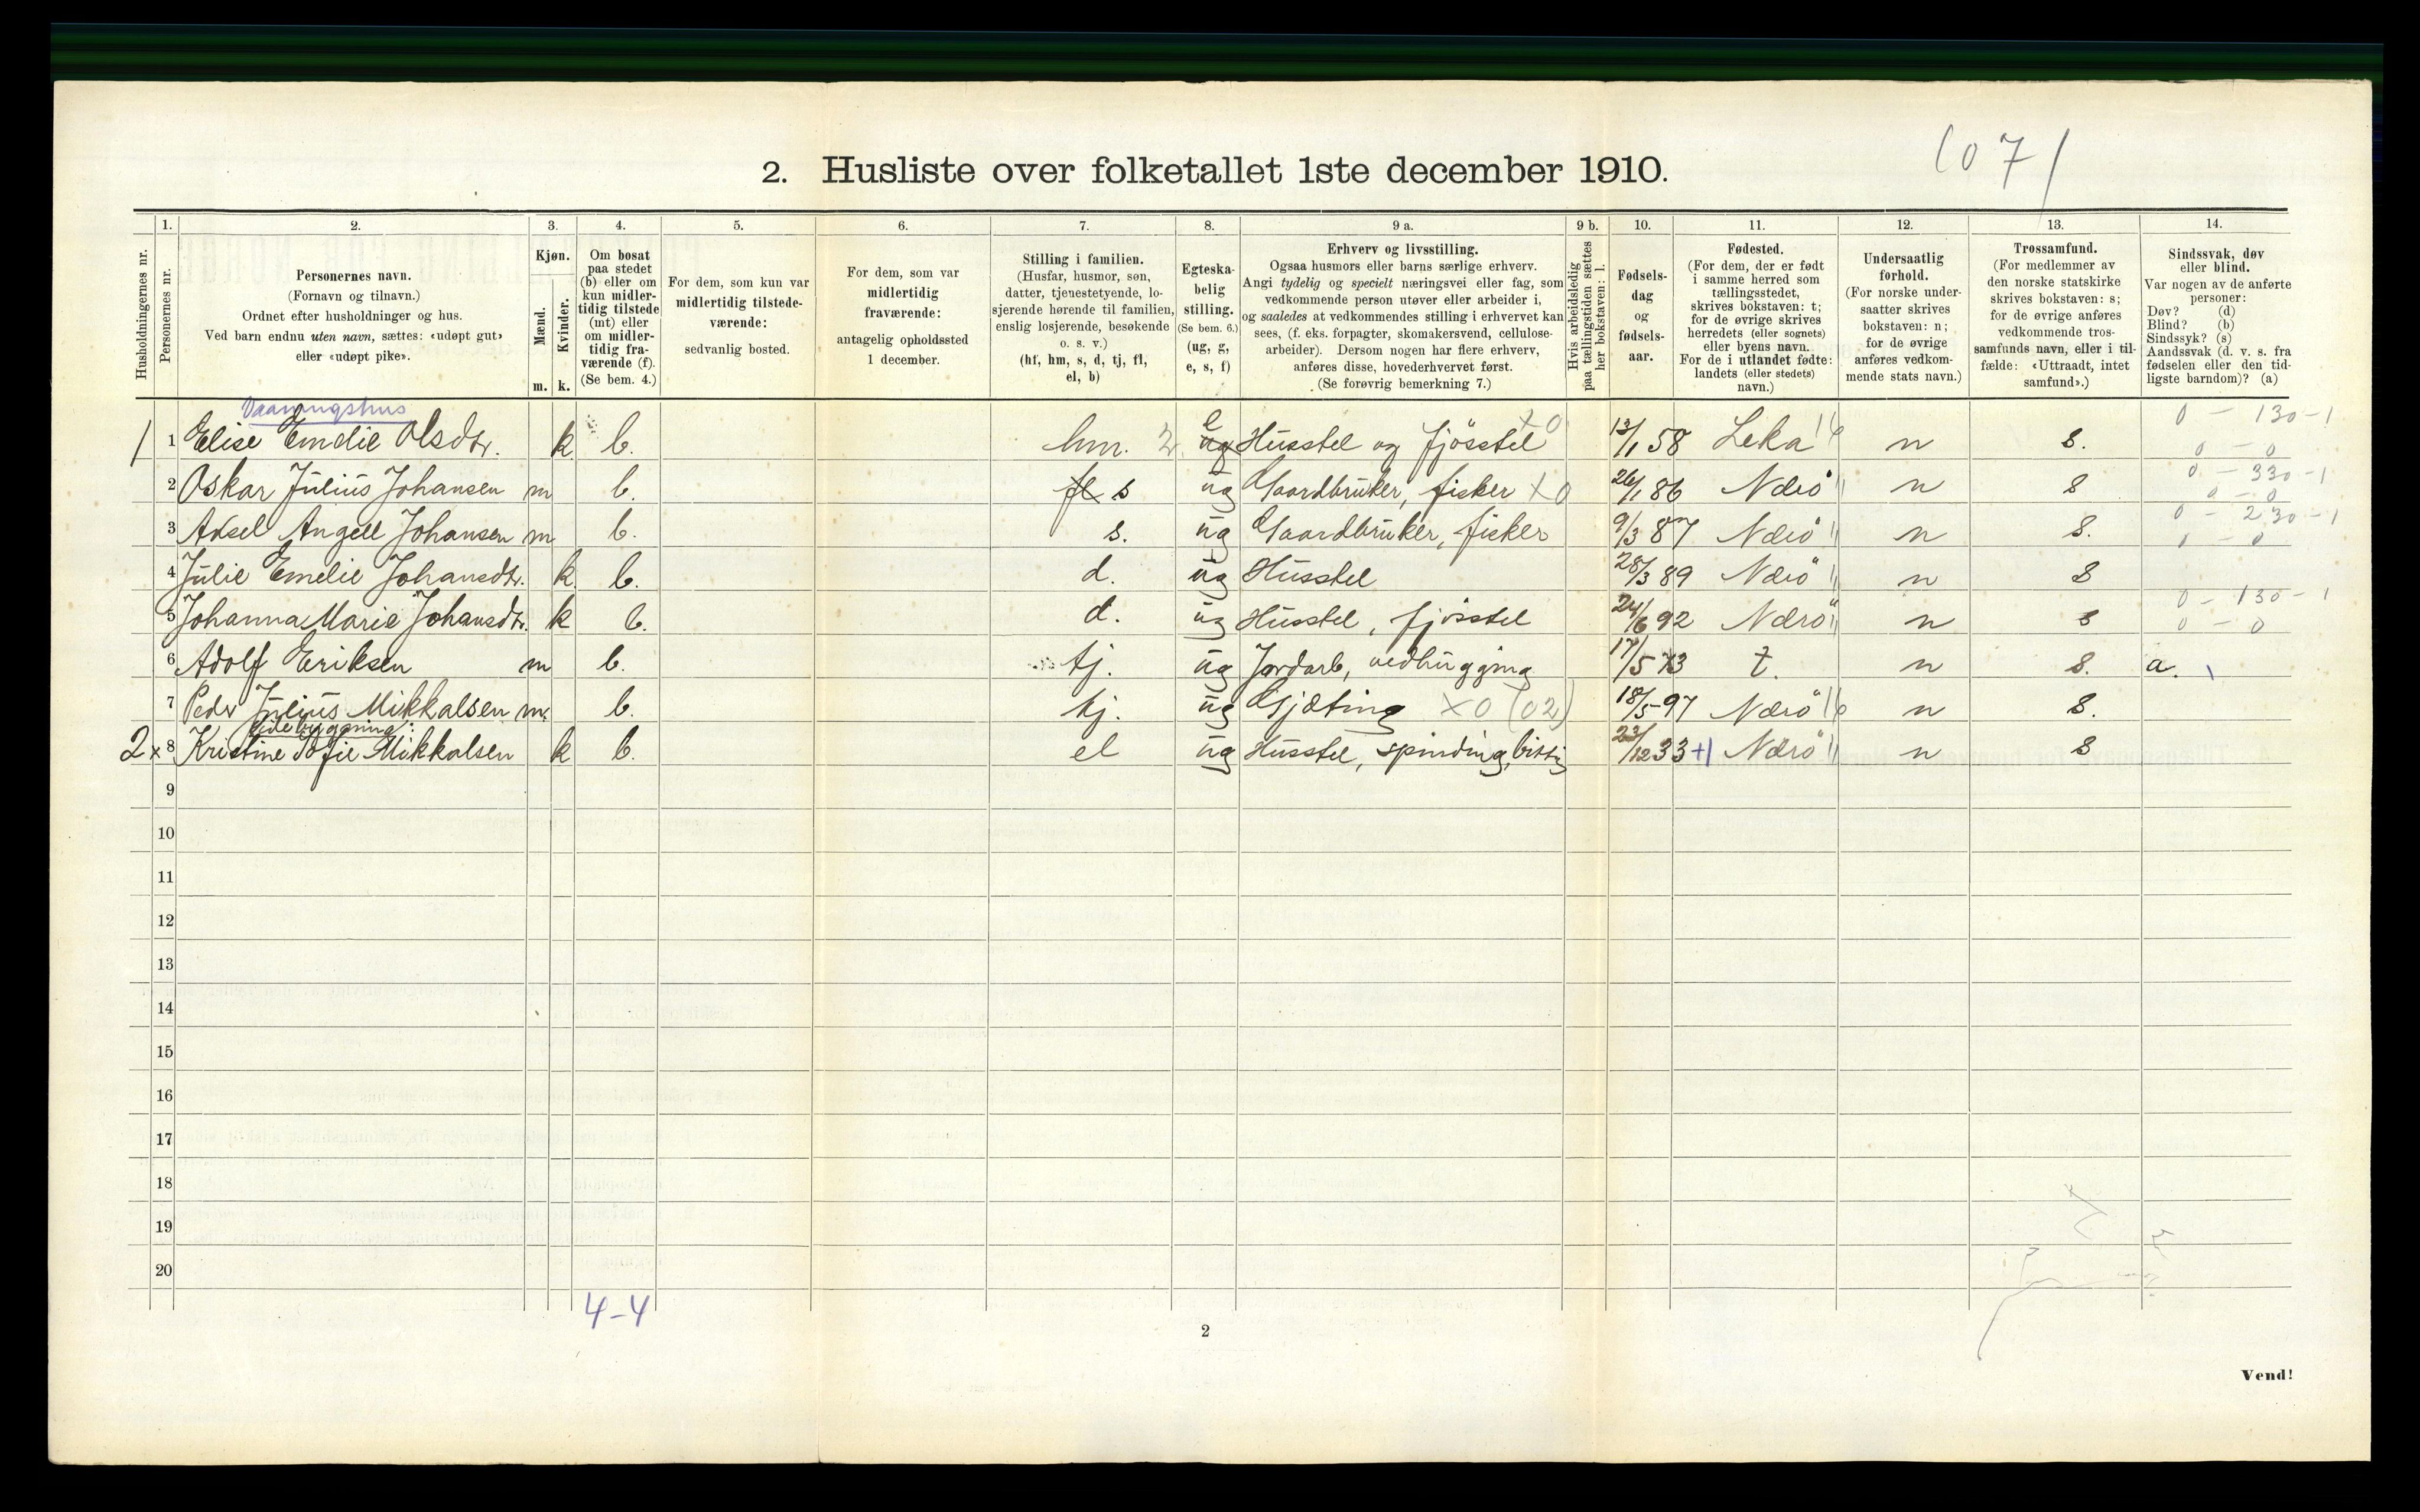 (07/
2. Husliste over folketallet 1ste december 1910.
1. 2. 3. 4. 5. 6. 7. 8. 9 a. 9 b. 10. 11. 12. 13. 14.
Husholdningernes nr.
Personernes nr.
Personernes navn.
(Fornavn og tilnavn.)
Ordnet efter husholdninger og hus.
Ved barn endnu uten navn, sættes: «udøpt gut»
eller «udøpt pike».
Kjøn.
Mænd.
Kvinder.
m. k.
Om bosat
paa stedet
(b) eller om
kun midler-
tidig tilstede
(mt) eller
om midler-
tidig fra-
værende (f).
(Se bem. 4.)
For dem, som kun var
midlertidig tilstede-
værende:
sedvanlig bosted.
For dem, som var
midlertidig
fraværende:
antagelig opholdssted
1 december.
Stilling i familien.
(Husfar, husmor, søn,
datter, tjenestetyende, lo-
sjerende hørende til familien,
enslig losjerende, besøkende
o. s. v.)
(hf, hm, s, d, tj, fl,
el, b)
Egteska-
belig
stilling.
(Se bem. 6.)
(ug, g,
e, s, f)
Erhverv og livsstilling.
Ogsaa husmors eller barns særlige erhverv.
Angi tydelig og specielt næringsvei eller fag, som
vedkommende person utøver eller arbeider i,
og saaledes at vedkommendes stilling i erhvervet kan
sees, (f. eks. forpagter, skomakersvend, cellulose-
arbeider). Dersom nogen har flere erhverv,
anføres disse, hovederhvervet først.
(Se forøvrig bemerkning 7.)
Hvis arbeidsledig
paa tællingstiden sættes
her bokstaven: l.
Fødsels-
dag
og
fødsels-
aar.
Fødested.
(For dem, der er født
i samme herred som
tællingsstedet,
skrives bokstaven: t;
for de øvrige skrives
herredets (eller sognets)
eller byens navn.
For de i utlandet fødte:
landets (eller stedets)
navn.)
Undersaatlig
forhold.
(For norske under-
saatter skrives
bokstaven: n;
for de øvrige
anføres vedkom-
mende stats navn.)
Trossamfund.
(For medlemmer av
den norske statskirke
skrives bokstaven: s;
for de øvrige anføres
vedkommende tros-
samfunds navn, eller i til-
fælde: «Uttraadt, intet
samfund».)
Sindssvak, døv
eller blind.
Var nogen av de anførte
personer:
Døv? (d)
Blind? (b)
Sindssyk? (s)
Aandssvak (d. v. s. fra
fødselen eller den tid-
ligste barndom)? (a)
Vaaningshus 0 - 130-1
1 1 Elise Emelie Olsdtr. k b. hm. 2 e ug Husstel og fjösstel X0 13/1 58 Leka n s. 0 - 0
0 - 330-1
2 Oskar Julius Johansen m b. fl s ug Gaardbruker, fisker X0 26/1 86 Närö n s 0 - 0
0 - 230-1
3 Aksel Angell Johansen m b. s. ug Gaardbruker, fisker 9/3 87 Närö n s. 0 - 0
4 Julie Emelie Johansdtr. k b. d. ug Husstel 28/3 89 Närö n s
0 - 130-1
5 Johanna Marie Johansdtr. k b. d. ug Husstel, fjösstel 24/6 92 Närö n s 0 - 0
6 Adolf Eriksen m b. tj. ug Jordarb, vedhugging 17/5 73 t. n s. a.
7 Peder Julius Mikkalsen m. b. tj. ug Gjæting X0 (02) 18/5 97 Närö n s.
Sidebygning:
2 x 8 Kristine Sofie Mikkalsen k b. el ug Husstel, spinding, 23/12 33 +1 Närö n s
9
10
11
12
13
14
15
16
17
18
19
20
4-4
2
Vend!